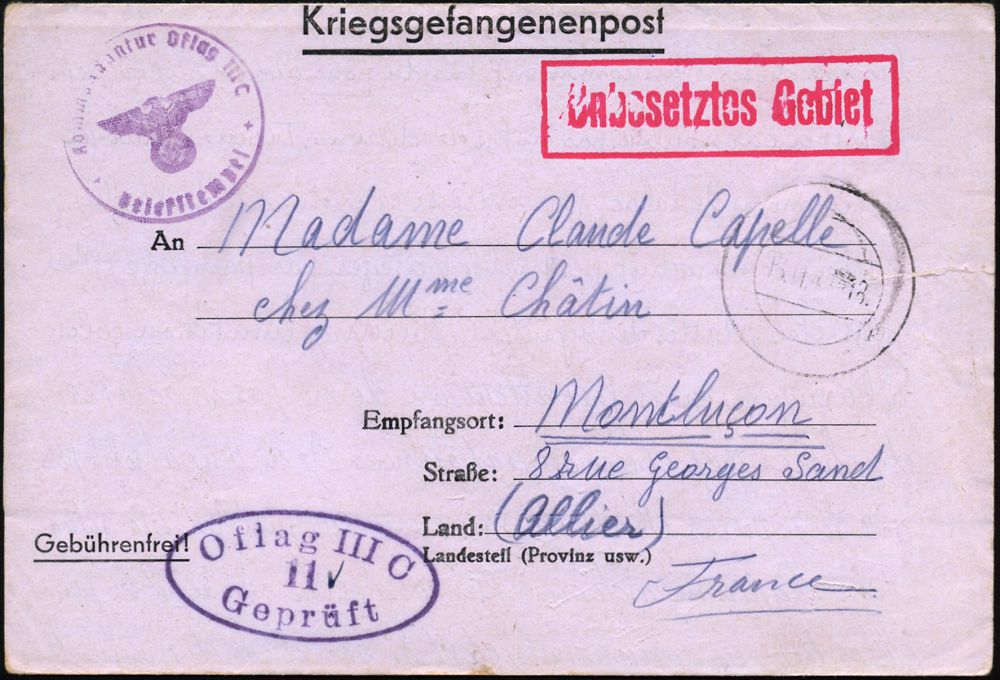 Kriegsgefangenenpost
Kommandantur Oflag III C
Briefstempel
Unbesetztes Gebiet
An Madame Claude Capelle
chez Mme Châtin
Empfangsort: Montluçon
Straße: 8 rue Georges Sand
Land: (Allier)
Landesteil (Provinz usw.)
France
Gebührenfrei!
Oflag III C
11
Geprüft